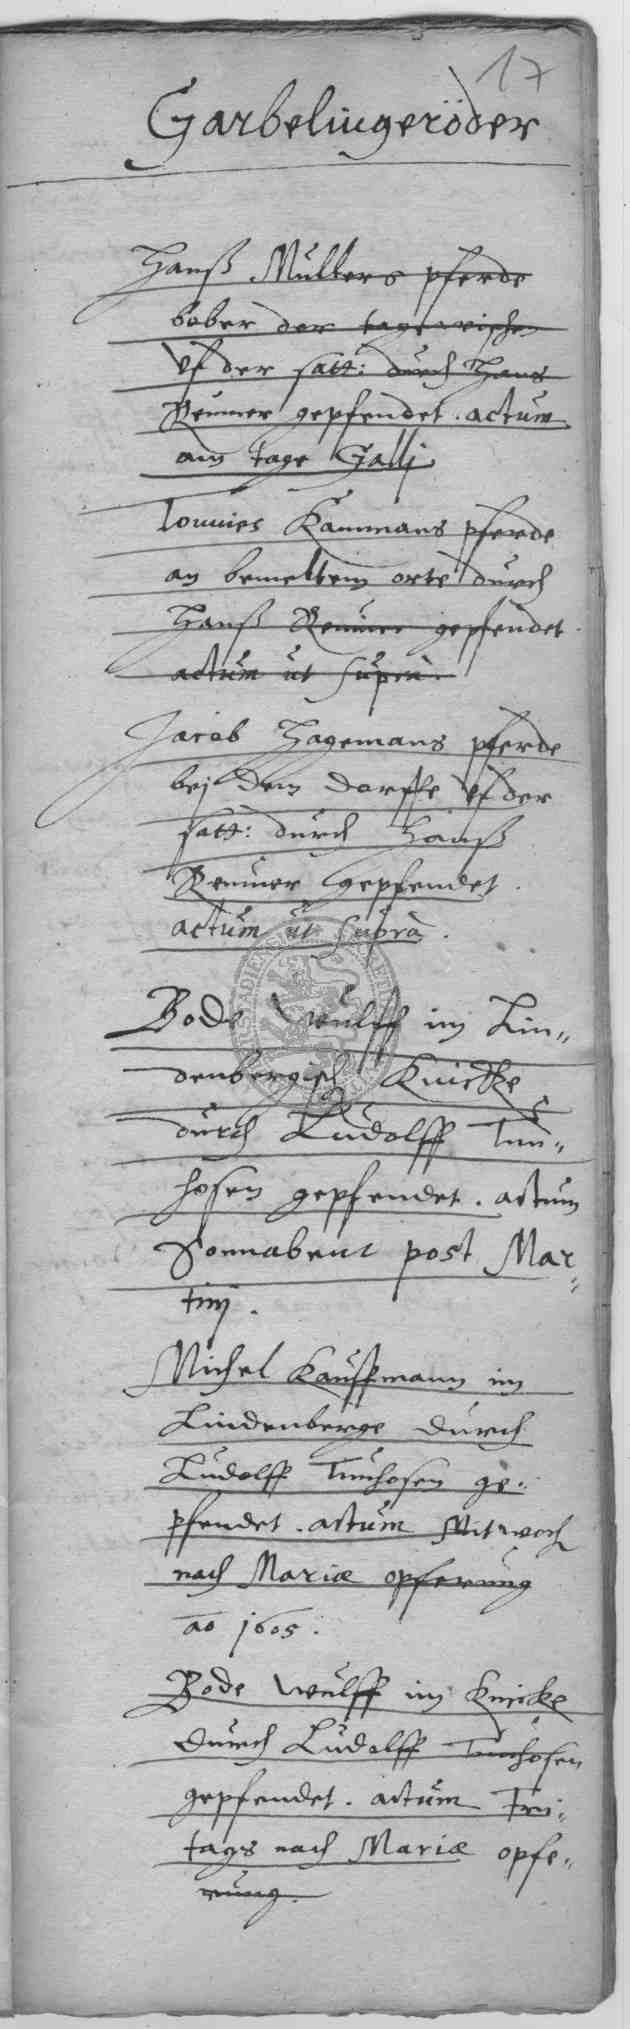 17
Garbelingeröder
Hanß Mullers pferde
bober der tagewischen
vf der satt: durch Hans
Reumer gepfendet. actum
am tage Galli
Tonnies Kammans pferde
an bemeltem orte durch
Hanß Reumer gepfendet.
actum ut supra.
Jacob Hagemans pferde
bej dem dorffe vf der
satt: durch Hanß
Reumer gepfendet.
actum ut supra.
Bode Wulff im Lin„
denbergisch Knicke
durch Ludolff Tun„
hosen gepfendet. actum
Sonnabent post Mar„
tinj.
Michel Kauffmann im
Lindenberge durch
Ludolff Tunhosen ge„
pfendet. actum Mitwoch
nach Mariæ opferung
ao 1605.
Bode Wulff im Knicke
durch Ludolff Tunhosen
gepfendet. actum Frei„
tags nach Mariæ opfe„
rung.